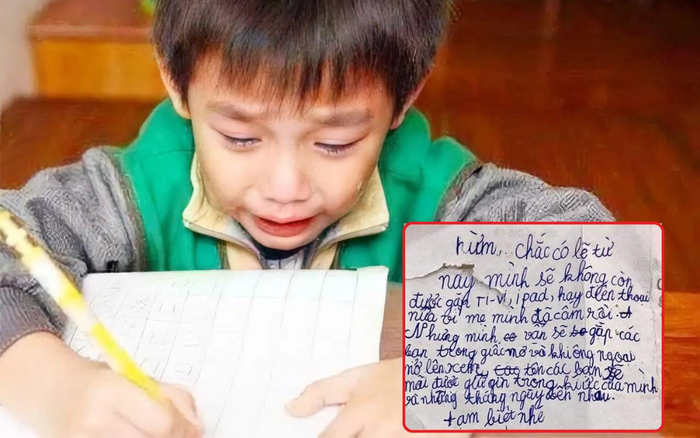 hừm... chắc có lẽ từ
nay mình sẽ không còn
được gặp TI-VI, Ipad, hay điện thoại
nữa vì mẹ mình đã cấm rồi.
Nhưng mình vẫn sẽ gặp các
bạn trong giấc mơ và khi ông ngoại
mở lên xem, tôn các bạn sẽ
mãi được giữ gìn trong kí ức của mình
và những tháng ngày bên nhau.
tạm biệt nhé